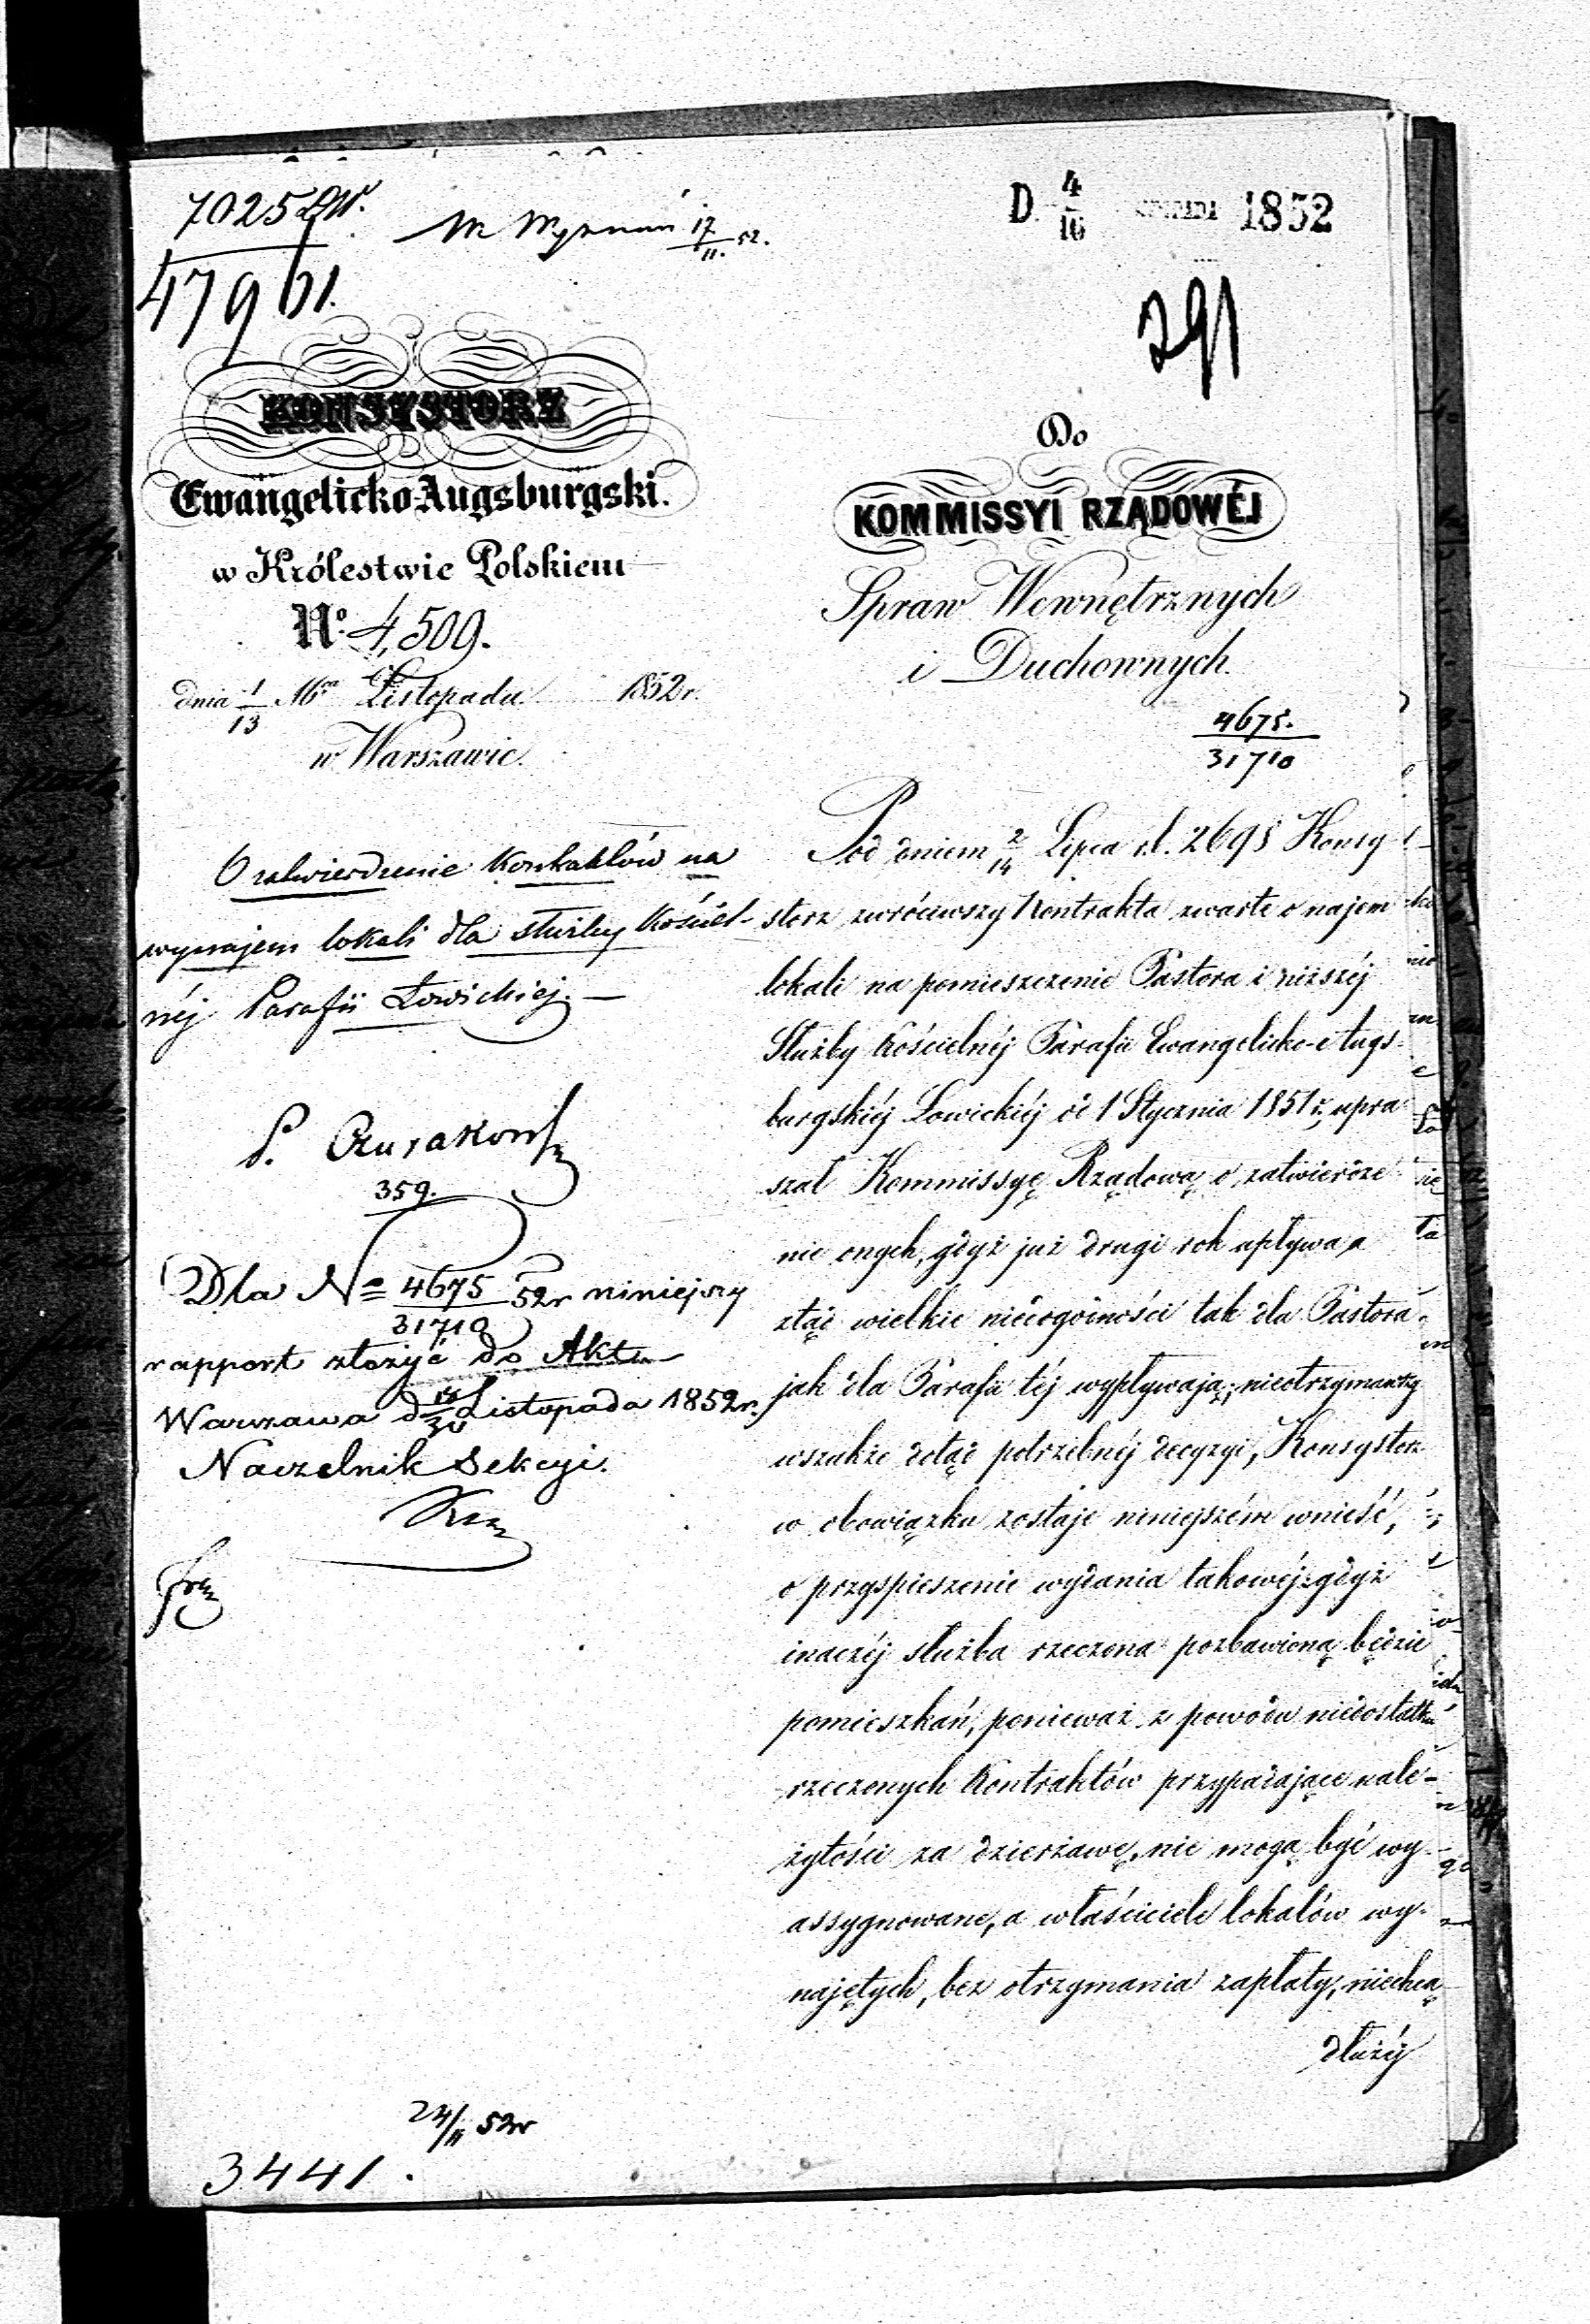 7025
47961.
D. 4/16 1852
291
KONSYSTORZ
Ewangelicko-Augsburgski.
w Królestwie Polskiem
No. 4,509.
dnia 1/13 Listopada 1852 r.
w Warszawie.
O zatwierdzenie kontraktów na
wynajem lokali dla służby kościel-
néj Parafii Łowickiej. —
359.
Dla No 4675/31710 52r niniejszy
rapport złożyć do Akt
Warszawa d. Listopada 1852r.
Naczelnik Sekcyi.
24/11 52r
3441.
Do
KOMMISSYI RZĄDOWÉJ
Spraw Wewnętrznych
i Duchownych.
4675.
31710
Pod dniem 2/14 Lipca r.b. 2695 Konsy-
storz zwróciwszy Kontrakta zwarte o najem
lokali na pomieszczenie Pastora i niższéj
Służby Kościelnéj Parafii Ewangelicko-Augs-
burgskiéj Łowickiéj od 1 Stycznia 1851 r. upra
szał Kommissyę Rządową o zatwierdze
nie onych, gdyż już drugi rok upływa a
ztąd wielkie niedogodności tak dla Pastora
jak dla Parafii téj wypływają; nieotrzymawszy
wszakże dotąd potrzebnéj decyzyi, Konsystorz
w obowiązku zostaje niniejszém wnieść,
o przyspieszenie wydania takowéj: gdyż
inaczéj służba rzeczona pozbawioną będzie
pomieszkań, ponieważ z powodu niedostatku
rzeczonych Kontraktów przypadające nale-
żytości za dzierżawę, nie mogą być wy-
assygnowane, a właściciele lokalów wy-
najętych, bez otrzymania zapłaty, niechcą
dłużéj